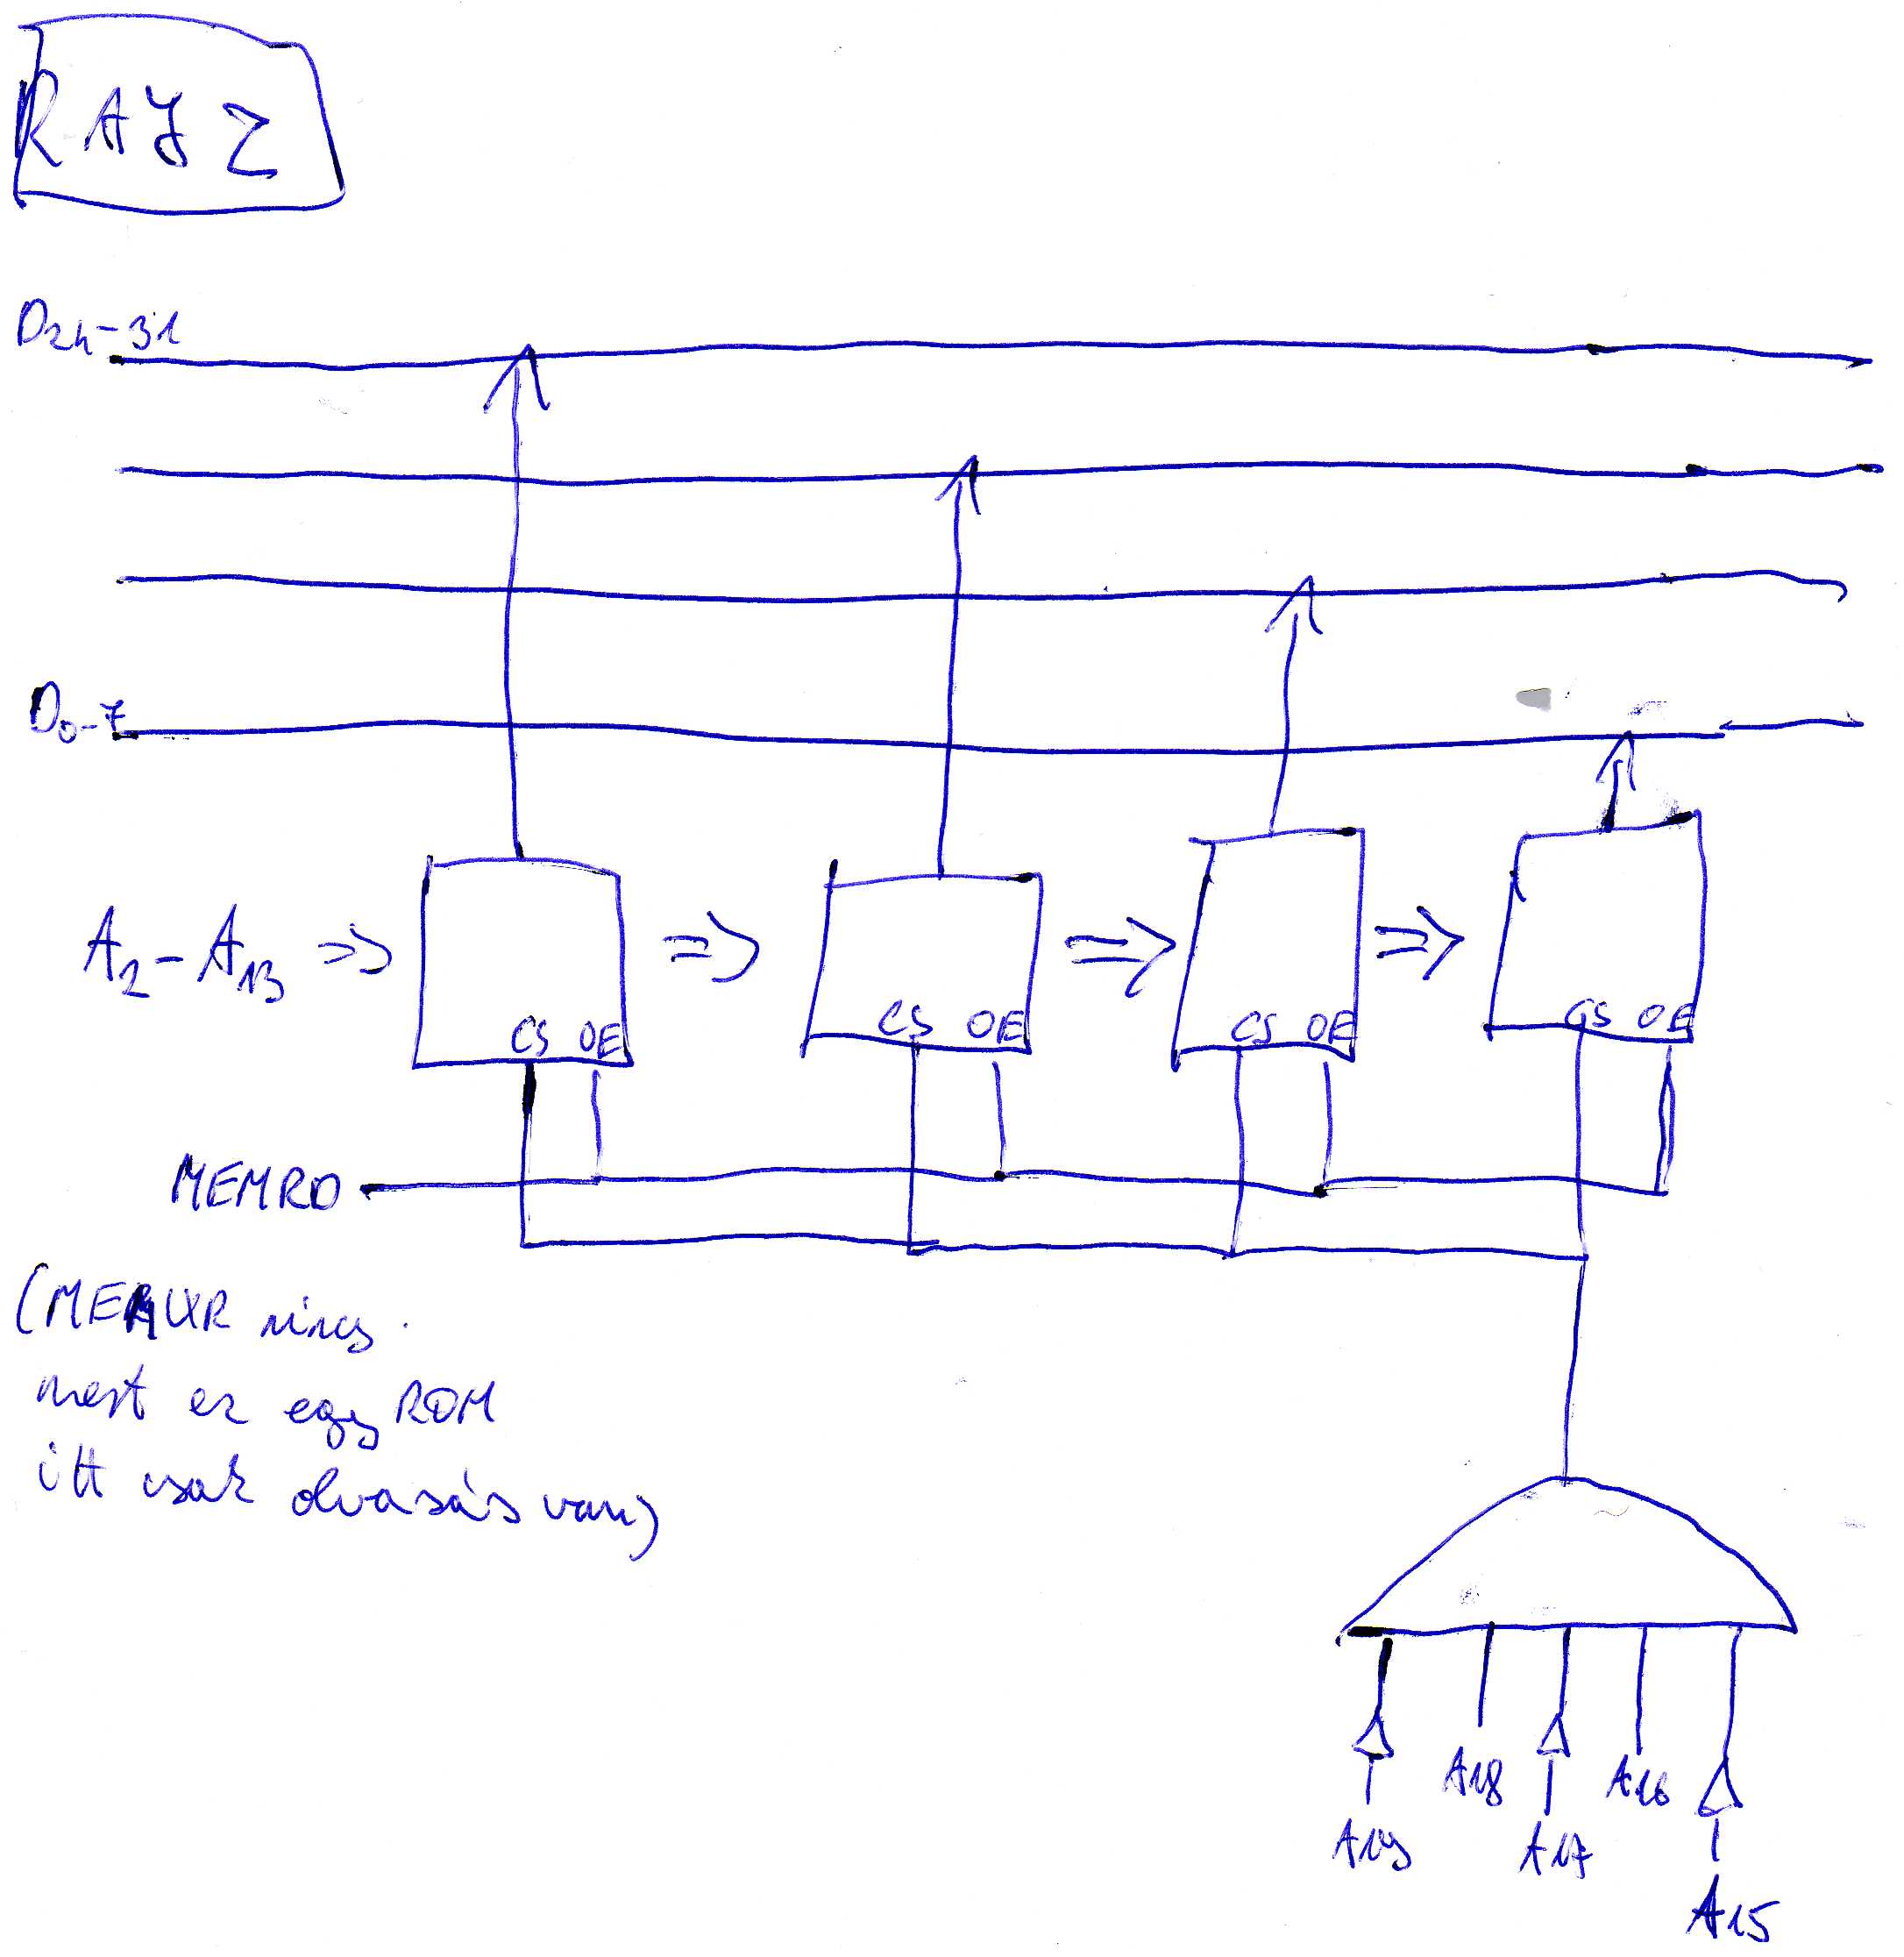 RAJZ
D24-31
D0-7
A2-A13 => => => =>
CS OE CS OE CS OE CS OE
MEMRD
(MEMWR nincs
mert ez egy ROM
itt csak olvasás van)
A18 A16
A19 A17
A15